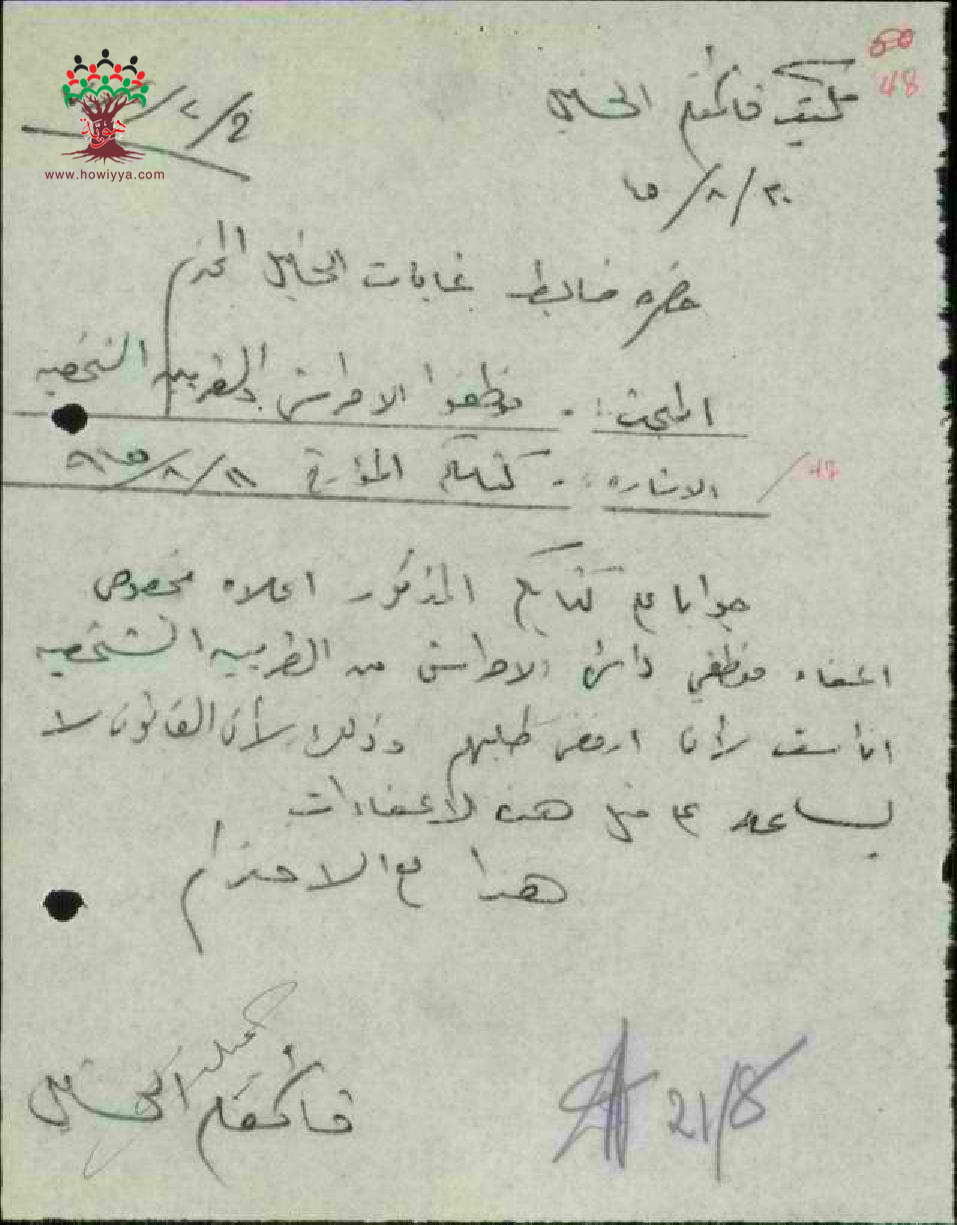 50
48
مكتب قائمقام الخليل
٢٠/٨/٤٥
حضرة ضابط غابات الخليل المحترم
المبحث :- موظفوا الاحراش والضريبه الشخصيه
الاشاره :- كتابكم المؤرخ ١١/٨/٩٤٥
47
جوابا على كتابكم المذكور اعلاه بخصوص
اعفاء موظفي دائرة الاحراش من الضريبيه الشخصيه
انا اسف لأن ارفض طلبهم وذلك لأن القانون لا
يساعد على مثل هذه الاعفاءات
هذا مع الاحترام
قائمقام الخليل
21/8
www.howiyya.com